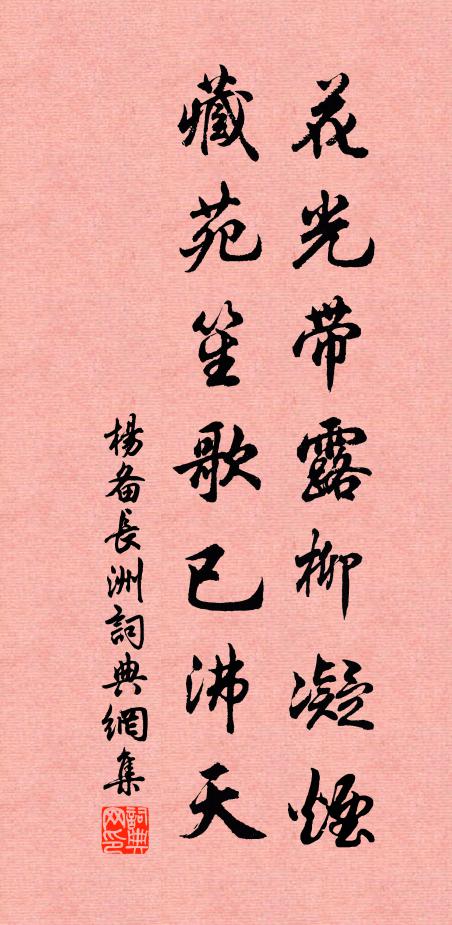 花光带露柳凝煙
藏苑笙歌已沸天
楊备長洲詞典網集
詞典网印